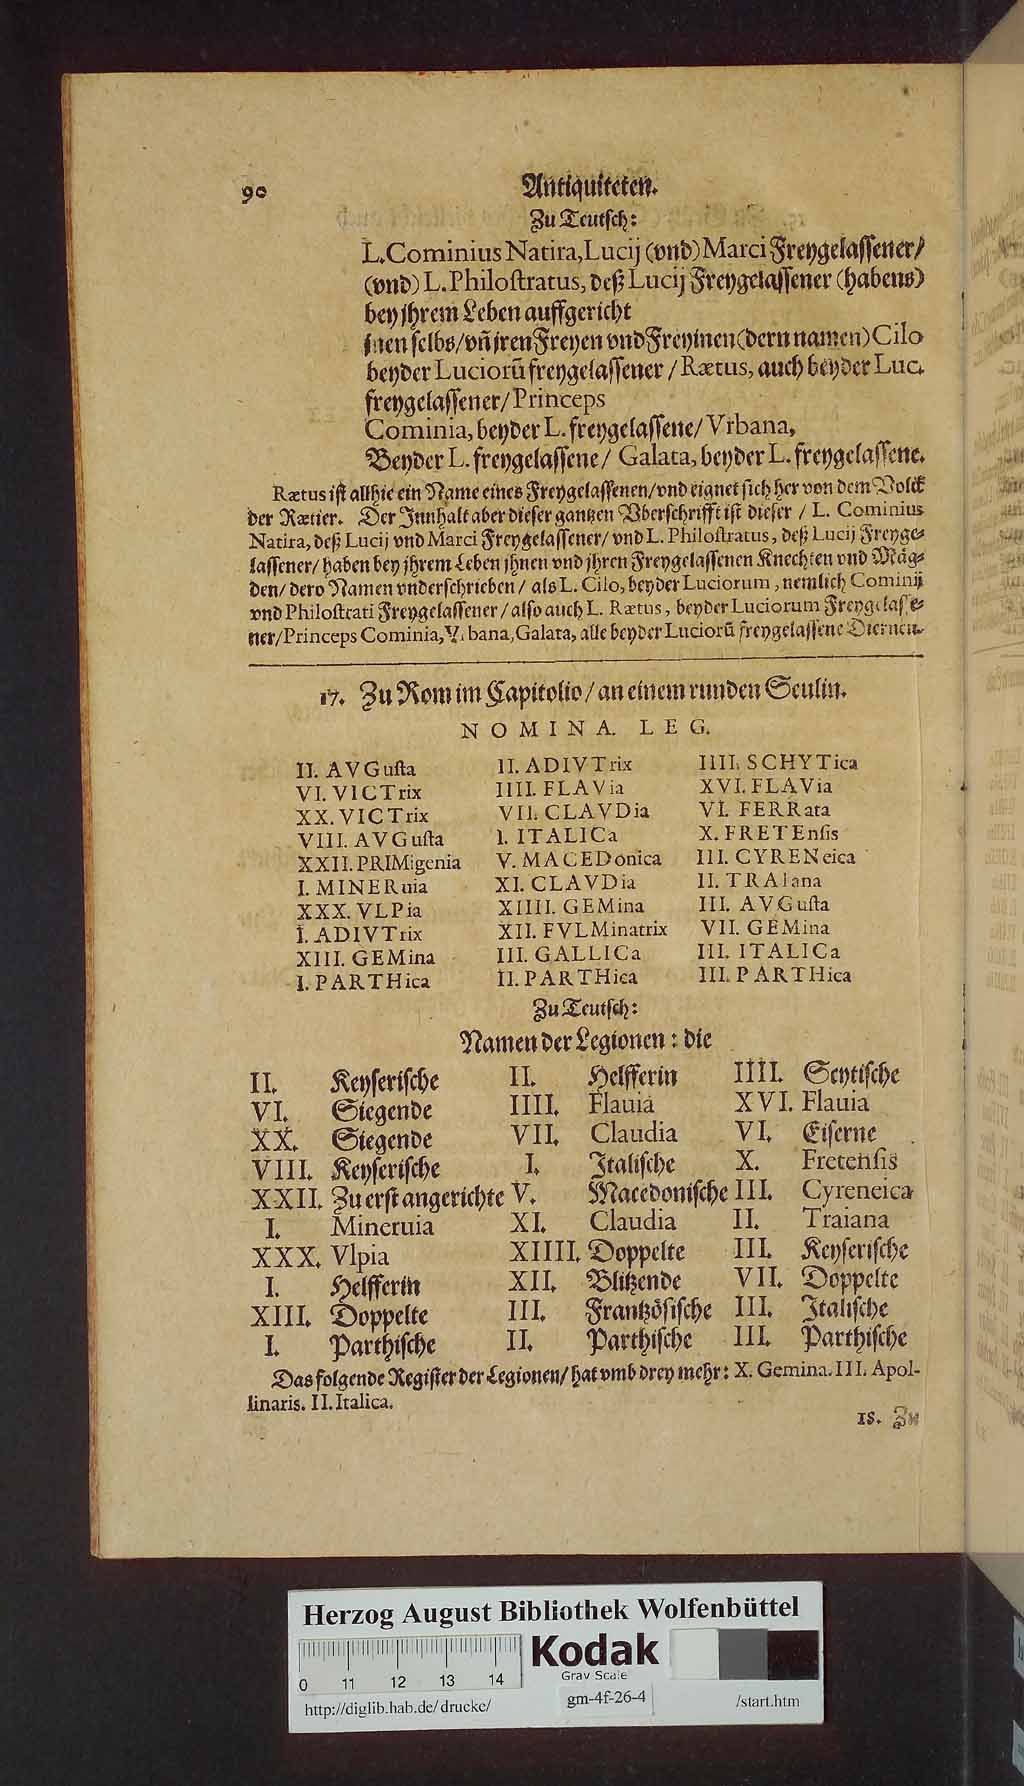 90 Antiquiteten.
Zu Teutsch:
L. Cominius Natira, Lucij (vnd) Marci Freygelassener/
(vnd) L. Philostratus, deß Lucij Freygelassener (habens)
bey jhrem Leben auffgericht
jnen selbs/vñ jren Freyen vnd Freyinen (dern namen) Cilo
beyder Luciorũ freygelassener / Rætus, auch beyder Luc.
freygelassener/Princeps
Cominia, beyder L. freygelassene/ Vrbana,
Beyder L. freygelassene/ Galata, beyder L. freygelassene.
Rætus ist allhie ein Name eines Freygelassenen/vnd eignet sich her von dem Volck
der Rætier. Der Innhalt aber dieser gantzen Vberschrifft ist dieser / L. Cominius
Natira, deß Lucij vnd Marci Freygelassener/ vnd L. Philostratus, deß Lucij Freyge-
lassener/ haben bey jhrem Leben jhnen vnd jhren Freygelassenen Knechten vnd Mäg-
den/ dero Namen vnderschrieben/ als L. Cilo, beyder Luciorum, nemlich Cominij
vnd Philostrati Freygelassener/also auch L. Rætus, beyder Luciorum Freygelasse-
ner/Princeps Cominia, Vrbana, Galata, alle beyder Luciorũ freygelassene Diernen.
17. Zu Rom im Capitolio/ an einem runden Seulin.
NOMINA. LEG.
II. AVGusta II. ADIVTrix IIII. SCHYTica
VI. VICTrix IIII. FLAVia XVI. FLAVia
XX. VICTrix VII. CLAVDia VI. FERRata
VIII. AVGusta I. ITALICa X. FRETEnsis
XXII. PRIMigenia V. MACEDonica III. CYRENeica
I. MINERuia XI. CLAVDia II. TRAIana
XXX. VLPia XIIII. GEMina III. AVGusta
I. ADIVTrix XII. FVLMinatrix VII. GEMina
XIII. GEMina III. GALLICa III. ITALICa
I. PARTHica II. PARTHica III. PARTHica
Zu Teutsch:
Namen der Legionen: die
II. Keyserische II. Helfferin IIII. Scytische
VI. Siegende IIII. Flauia XVI. Flauia
XX. Siegende VII. Claudia VI. Eiserne
VIII. Keyserische I. Italische X. Fretensis
XXII. Zu erst angerichte V. Macedonische III. Cyreneica
I. Mineruia XI. Claudia II. Traiana
XXX. Vlpia XIIII. Doppelte III. Keyserische
I. Helfferin XII. Blitzende VII. Doppelte
XIII. Doppelte III. Frantzösische III. Italische
I. Parthische II. Parthische III. Parthische
Das folgende Register der Legionen/ hat vmb drey mehr: X. Gemina. III. Apol-
linaris. II. Italica.
18. Zu
Herzog August Bibliothek Wolfenbüttel
Kodak
Gray Scale
0 11 12 13 14
http://diglib.hab.de/drucke/ gm-4f-26-4 /start.htm